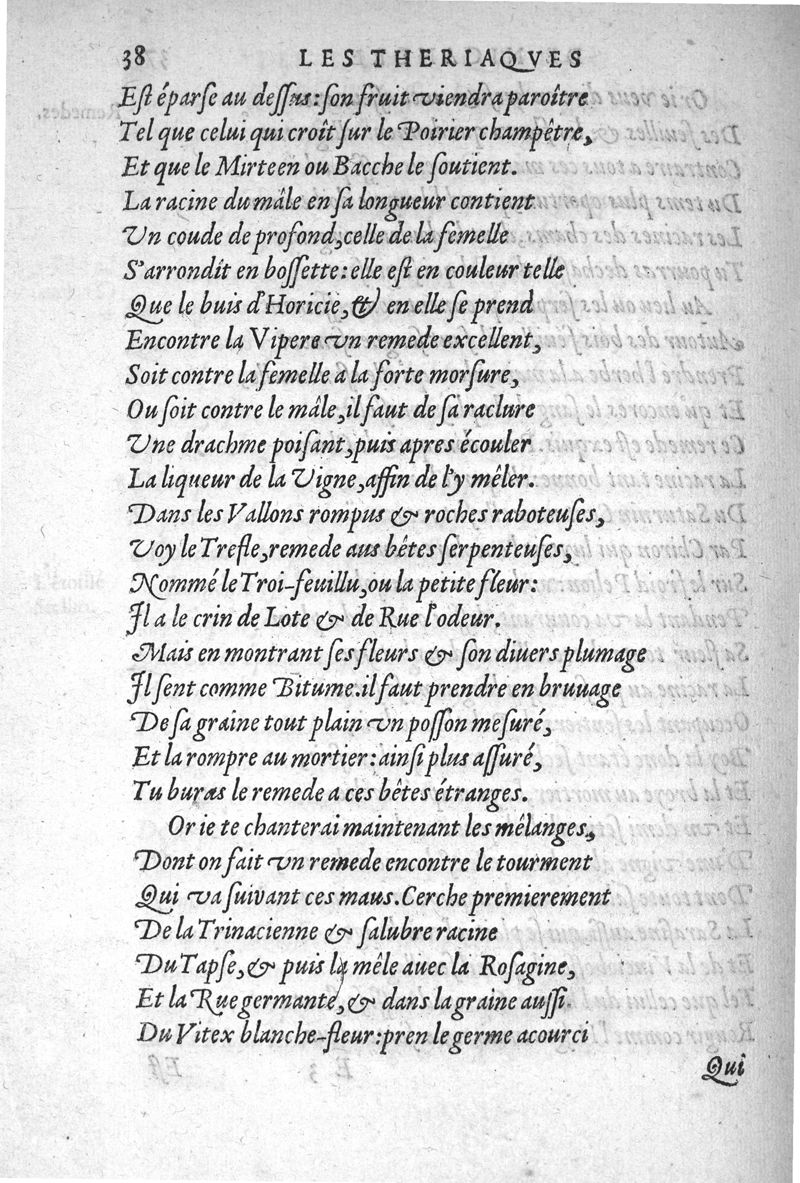 38 LES THERIAQVES
Est éparse au dessus: son fruit viendra paroître
Tel que celui qui croît sur le Poirier champêtre,
Et que le Mirteen ou Bacche le soutient.
La racine du mâle en sa longueur contient
Vn coude de profond, celle de la femelle
S'arrondit en bossette: elle est en couleur telle
Que le buis d'Horicie, & en elle se prend
Encontre la Vipere vn remede excellent,
Soit contre la femelle a la forte morsure,
Ou soit contre le mâle, il faut de sa raclure
Vne drachme poisant, puis apres écouler
La liqueur de la Vigne, affin de l'y mêler.
Dans les Vallons rompus & roches raboteuses,
Voy le Trefle, remede aus bêtes serpenteuses,
Nommé le Troi-feuillu, ou la petite fleur:
Il a le crin de Lote & de Rue l'odeur.
Mais en montrant ses fleurs & son diuers plumage
Il sent comme Bitume. il faut prendre en bruuage
De sa graine tout plain vn posson mesuré,
Et la rompre au mortier: ainsi plus assuré,
Tu buras le remede a ces bêtes étranges.
Or ie te chanterai maintenant les mélanges,
Dont on fait vn remede encontre le tourment
Qui va suiuant ces maus. Cerche premierement
De la Trinacienne & salubre racine
Du Tapse, & puis la mêle auec la Rosagine,
Et la Rue germante, & dans la graine aussi
Du Vitex blanche-fleur: pren le germe acourci
Qui